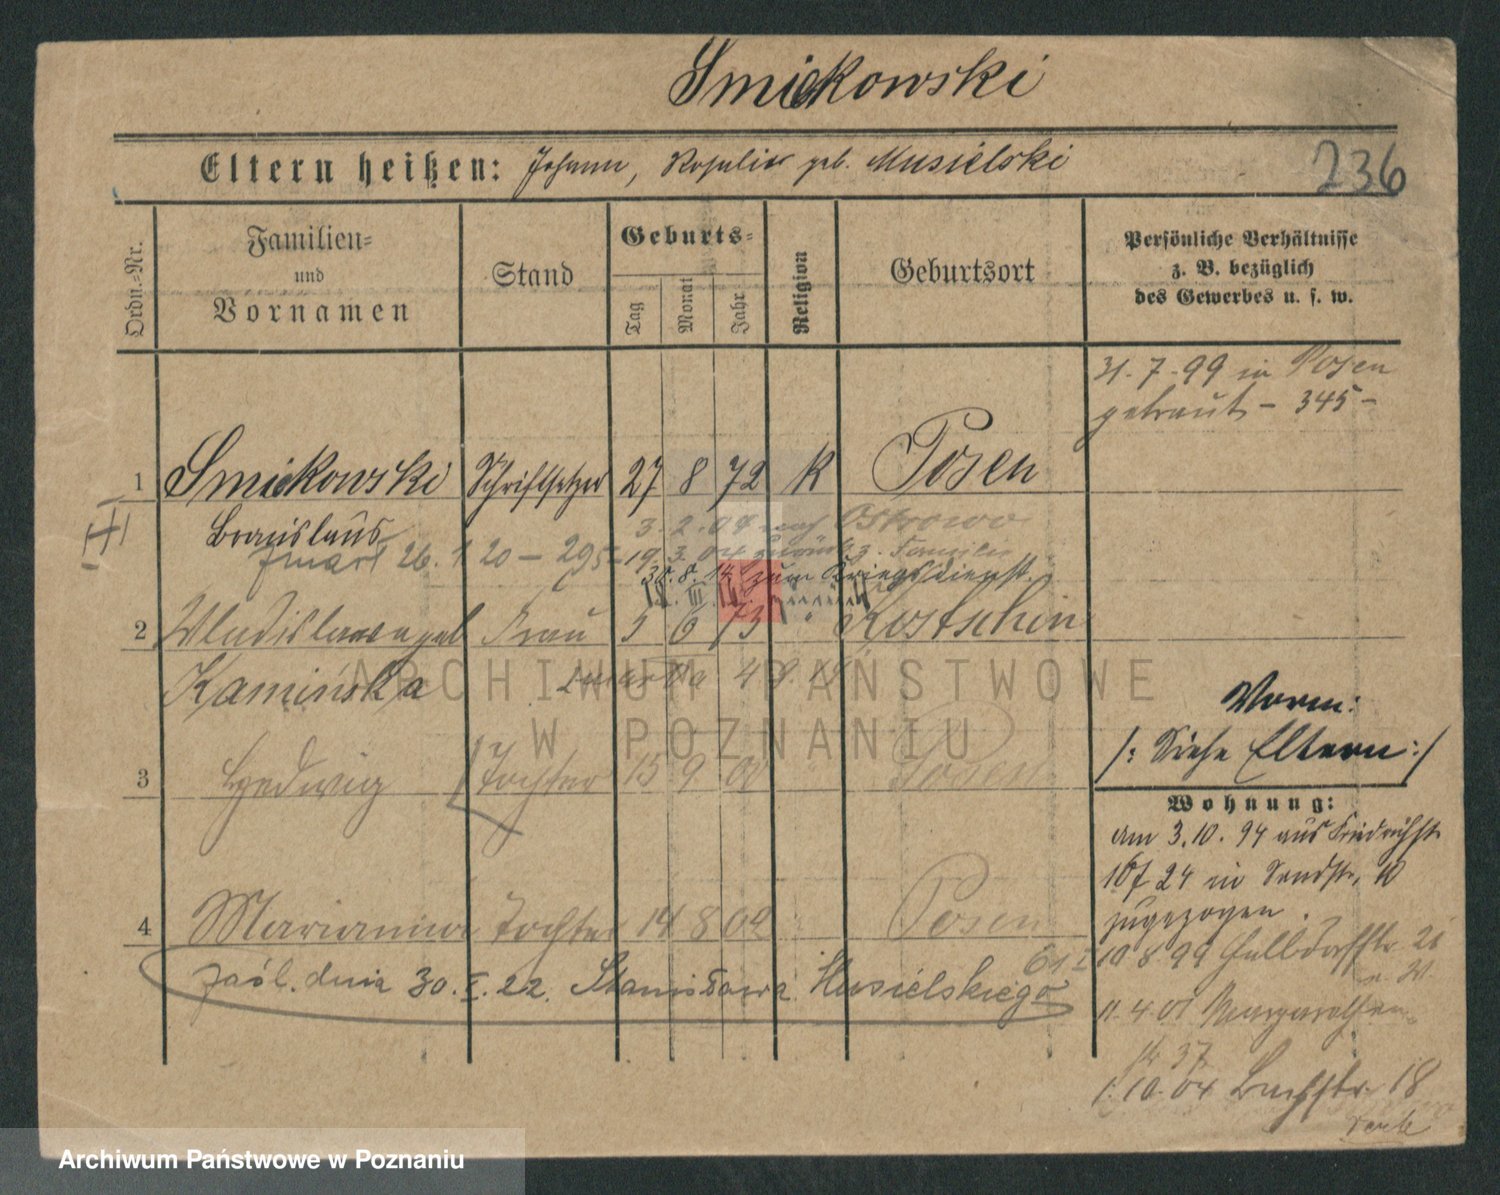 Smiekowski
Eltern heißen: Johann, Rosalia geb. Musielski
236
Ordn.-Nr.
Familien-
und
Vornamen
Stand
Geburts-
Tag
Monat
Jahr
Religion
Geburtsort
Persönliche Verhältnisse
z. B. bezüglich
des Gewerbes u. s. w.
31. 7. 99 in Posen
getraut - 345 -
1 Smiekowski Schriftsetzer 27 8 72 K Posen
Bronislaus
3. 2. 04 nach Ostrowo
zmarł 26. 1 20 - 295 - 19. 3. 04 zurück z. Familie
8. 14 zum Kriegsdienst.
2 Wladislawa geb Frau 5 6 73 " Kostschin
Kamińska
zmarła 4 8
3 Hedwig Tochter 15 9 00 Posen
4 Marianna Tochter 14 8 02 Posen
zaśl. dnia 30. X. 22. Stanisława Musielskiego
Vorm:
/: Siehe Eltern :/
Wohnung:
am 3. 10. 94 aus Friedrichstr
24 in Sandstr, 10
zugezogen.
10 8 99
11. 4 01
37
1. 10. 04 Bachstr. 18
ARCHIWUM PAŃSTWOWE
W POZNANIU
Archiwum Państwowe w Poznaniu